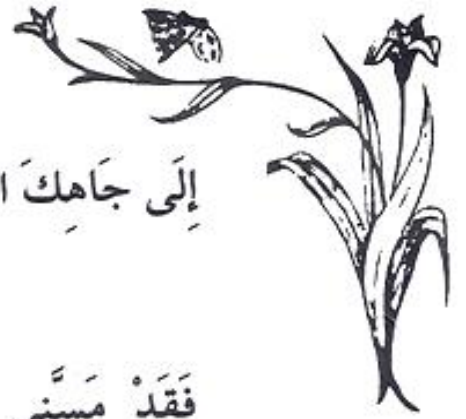 إِلَى جَاهِكَ ا
فَقَدْ مَسَّنِي